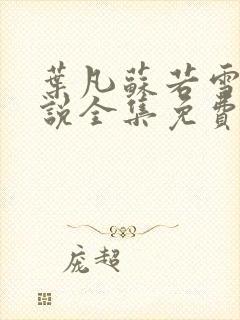 葉凡蘇若雪
說全集免費
庞超